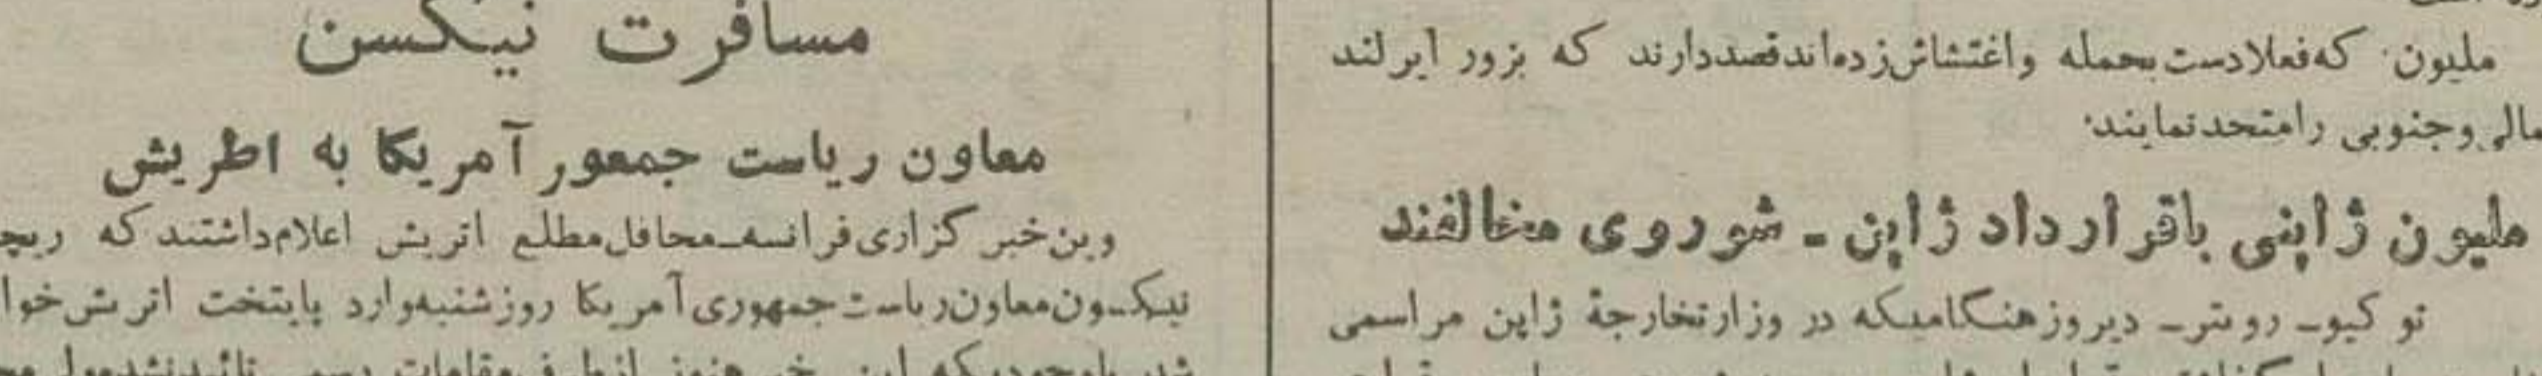 ملیون که‌فعلا دست بحمله واغتشاش‌زده‌اند قصددارند که بزور ایرلند
مالی وجنوبی رامتحدنمایند.
ملیون ژاپنی باقرارداد ژاپن ـ شوروی مخالفند
توکیوـ رویترـ دیروزهنگامیکه در وزارتخارجهٔ ژاپن مراسمی
مسافرت نیکسن
معاون ریاست جمعور آمریکا به اطریش
وین‌خبرگزاری‌فرانسه‌ـمحافل‌مطلع اتریش اعلام‌داشتند که ریچ
نیکسون‌معاون‌ریاست‌جمهوری‌آمریکا روزشنبه‌وارد پایتخت اتریش‌خوا
شد. باوجودیکه این خبر هنوز ازطرف مقامات رسمی تائیدنشده